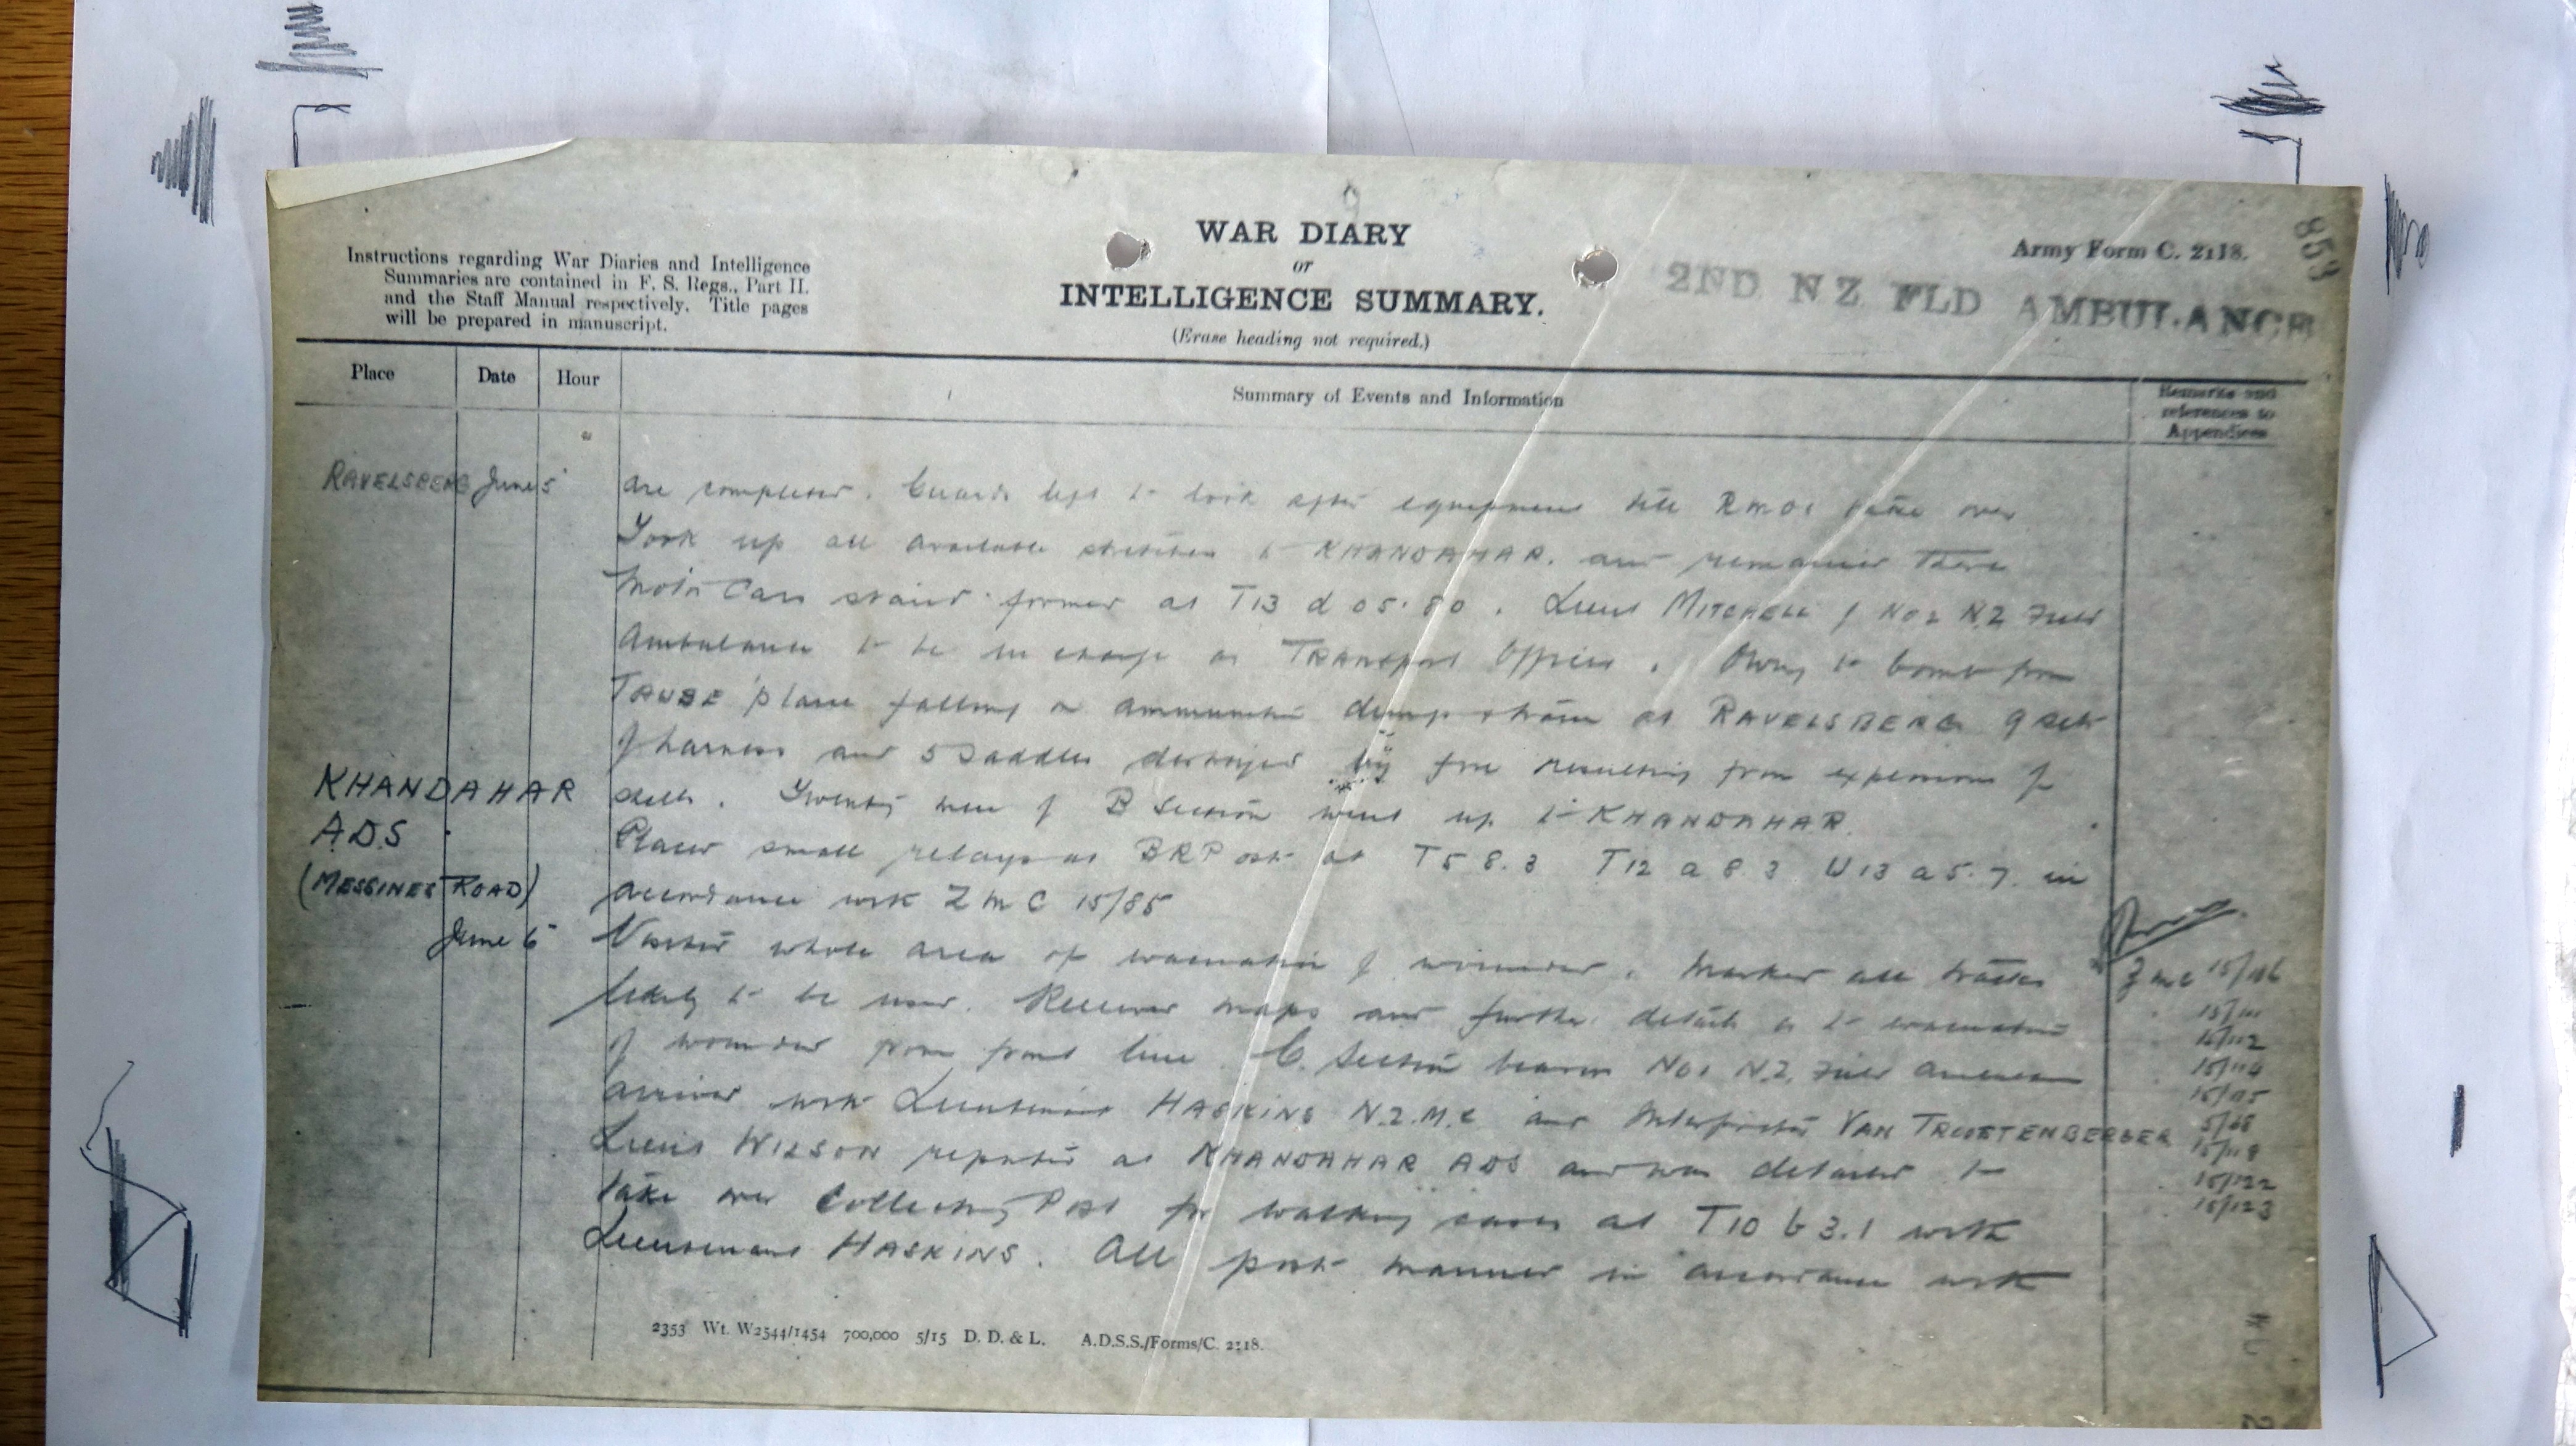 853
WAR DIARY
or
INTELLIGENCE SUMMARY.
(Erase heading not required.)
Instructions regarding War Diaries and Intelligence
Summaries are contained in F. S. Regs., Part II.
and the Staff Manual respectively. Title pages
will be prepared in manuscript.
Army Form C. 2118.
2ND NZ FLD AMBULANCE
Place Date Hour Summary of Events and Information Remarks and
references to
Appendices
RAVELSBERG June 5 are completed. Guards left to look after equipment till RMOs take over
Took up all available stretchers to KHANDAHAR. and remained there
Motor Cars stand former at T13 d 05.80. Lieut MITCHELL of No 2 N.Z Field
Ambulance to be in charge as TRANSPORT Officer. Owing to bomb from
TAUBE plane falling on ammunition dump at RAVELSBERG 9 sets
of harness and 5 Saddles destroyed by fire resulting from explosion of
shells. Twenty men of B Section went up to KHANDAHAR.
KHANDAHAR
ADS
(MESSINES ROAD)
Placed small relays at BRPosts at T5 8.3 T12 a 8 3 U13 a 5.7. in
accordance with ZMC 15/85
June 6 Visited whole area of evacuation of wounded. Marked all tracks
likely to be used. Received maps and further details as to evacuation
of wounded from front line. C. Section bearers No1 N.Z. Field Ambulance
arrived with Lieutenant HASKINS N.Z.M.C and Interpreter VAN TROOSTENBERGER
Lieut WILSON reported at KHANDAHAR ADS and was detailed to
take over Collecting Post for walking cases at T10 b 3.1 with
Lieutenant HASKINS. All posts manned in accordance with
ZMC 15/106
15/111
15/112
15/114
15/115
15/118
15/122
15/123
2353 Wt. W2544/1454 700,000 5/15 D. D. & L. A.D.S.S./Forms/C. 2118.